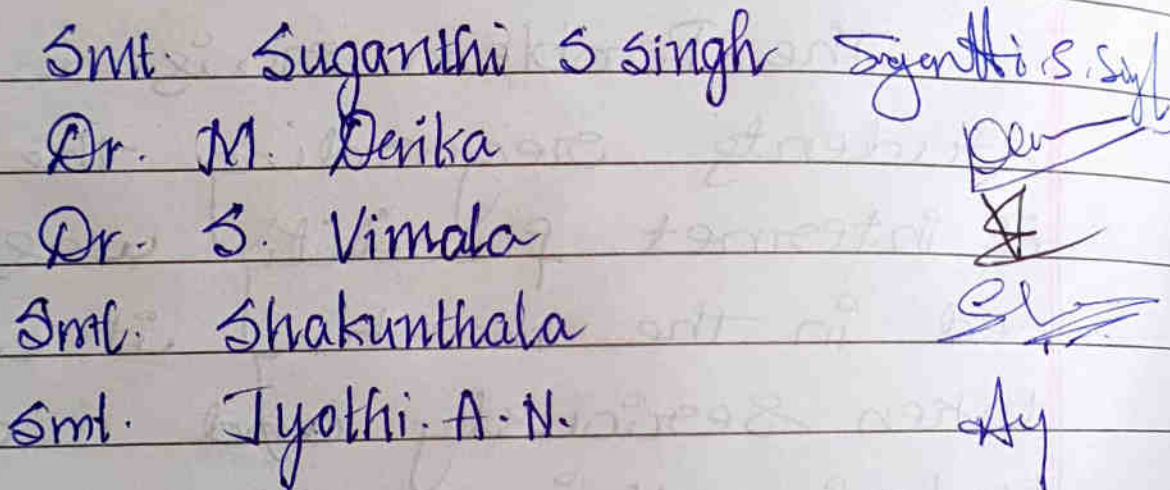 Smt. Suganthi S Singh Suganthi.S.Singh
Dr. M. Devika Dev
Dr. S. Vimala
Smt. Shakunthala
Smt. Jyothi. A. N.